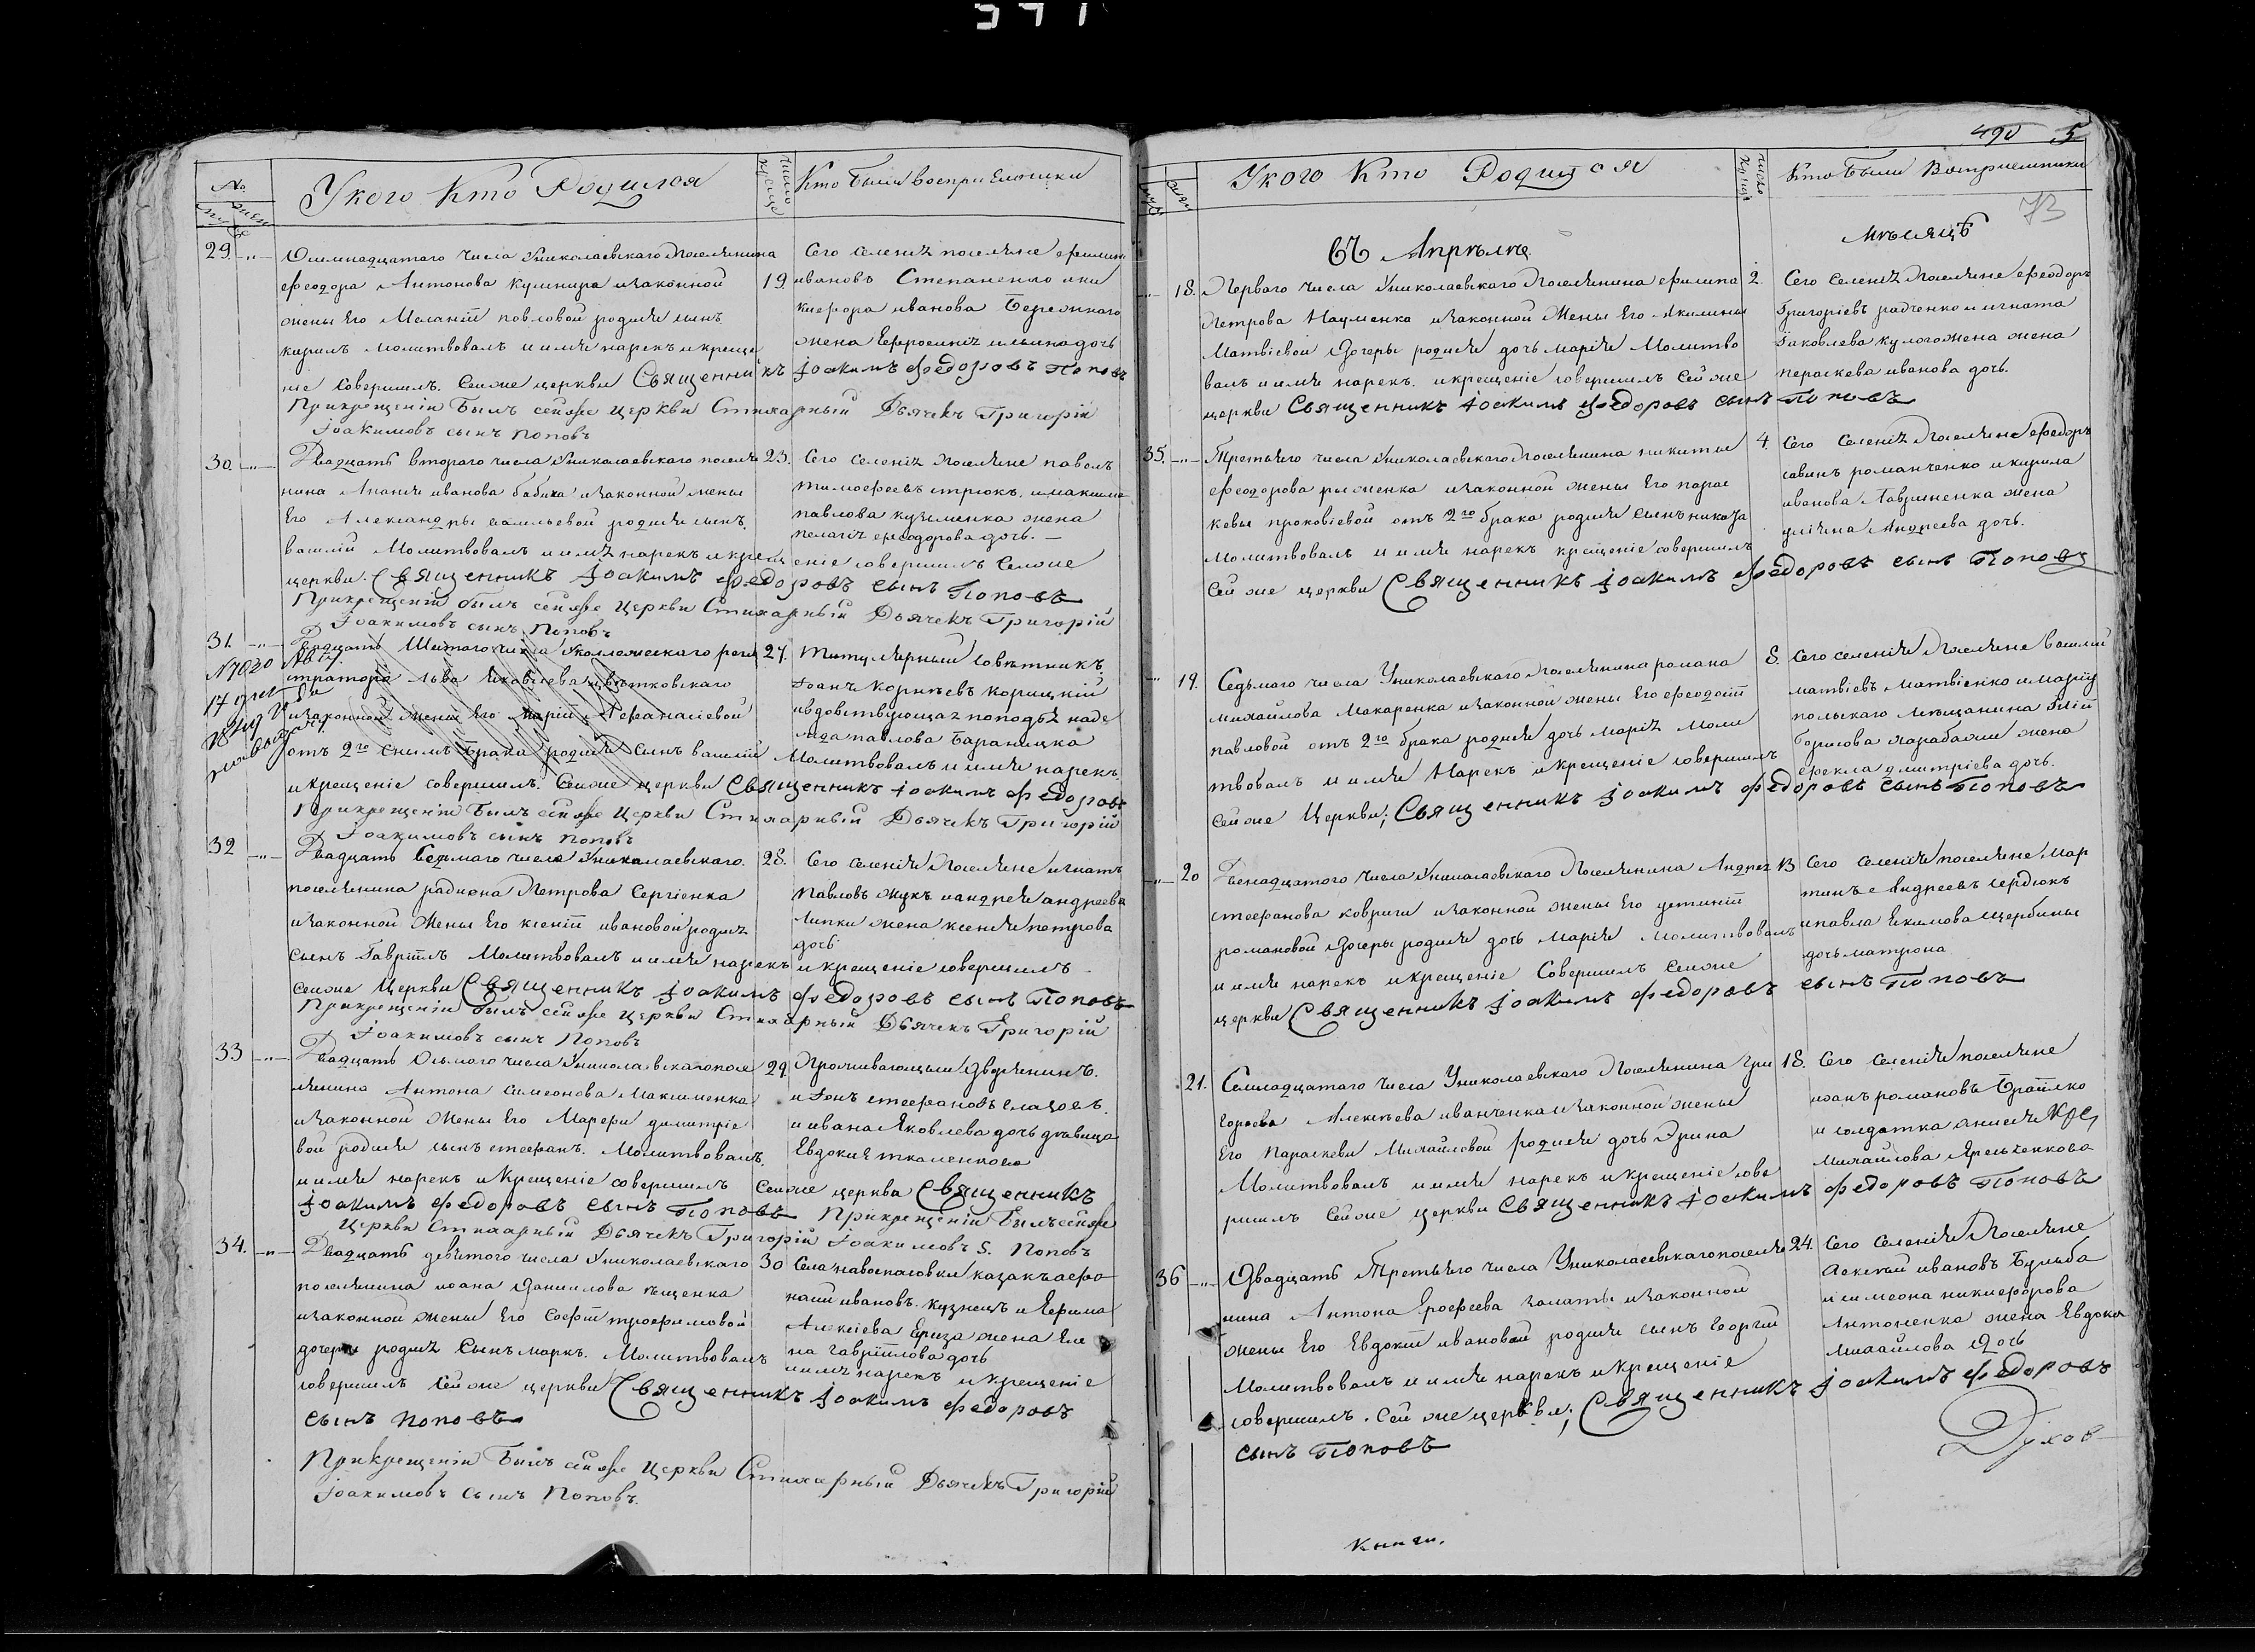 371
№
Укого Кто Родился
число крещ
Кто были восприемники
29
Осемнадцатого числа Униколаевскаго поселянина
феодора Антонова кушнира изаконной
жены Его Меланіи павловой родися сынъ
кирилъ молитвовалъ и имя нарекъ и креще
ніе совершилъ. Сейже церкви Священникъ Іоакимъ федоровъ Поповъ
Прикрещеніи былъ сейже церкви Стихарный Дьячекъ Григорій
Іоакимовъ сынъ Поповъ
19
Сего селенія поселяне филипъ
ивановъ Степаненко
иванова Бережнаго
жена Евфросинія дочь
30.
Двадцать втораго числа Униколаевскаго поселя
нина Ананіи иванова бабиха изаконной жены
Его Александры васильевой родися сынъ
василій Молитвовалъ и имя нарекъ и крещеніе совершилъ Сейже
церкви. Священникъ Іоакимъ федоровъ сынъ Поповъ
Прикрещеніи былъ сейже церкви Стихарный Дьячекъ Григорій
Іоакимовъ сынъ Поповъ
23.
Сего селенія поселяне павелъ
тимофеевъ стрюкъ, имаксима
павлова кузьменка жена
пелагія феодорова дочь.
31.
N7020
17
Двадцать Шестаго числа Уколлежскаго реги
стратора льва Яковлева цвѣтковскаго
изаконной жены Его Маріи Афанасіевой
отъ 2го снимъ брака родися Сынъ василій Молитвовалъ и имя нарекъ
и крещеніе совершилъ. Сейже церкви Священникъ Іоакимъ федоровъ
Прикрещеніи Былъ сейже Церкви Стихарный Дьячекъ Григорій
Іоакимовъ сынъ Поповъ
27.
Титулярный совѣтникъ
Іоанъ Корнѣевъ Корицкій
ивдовствующая попадья наде
жда павлова Бараницка
32
Двадцать Седмаго числа Уникалаевскаго
поселянина радиона Петрова Сергіенка
изаконной Жены Его ксеніи ивановой родися
сынъ Гавріилъ Молитвовалъ и имя нарекъ и крещеніе совершилъ
Сейже Церкви Священникъ Іоакимъ федоровъ сынъ Поповъ
Прикрещеніи былъ сейже церкви Стихарный Дьячекъ Григорій
Іоакимовъ сынъ Поповъ
28.
Сего селенія поселяне игнатъ
Павловъ жукъ иандрея андреева
Липки жена ксенія петрова
дочь
33
Двадцать Осьмого числа Униколаевскаго посе
лянина Антона симеонова Максименка
изаконной Жены Его Марфи димитріе
вой родися сынъ стефанъ. Молитвовалъ
и имя нарекъ и Крещеніе совершилъ Сейже церкви Священникъ
Іоакимъ федоровъ сынъ Поповъ Прикрещеніи Былъ сейже
Церкви Стихарный Дьячекъ Григорій Іоакимовъ S. Поповъ
29.
Проживающый дворянинъ
стефановъ
и ивана Яковлева дочь дѣвица
Евдокія ткаленкова
34.
Двадцать девятого числа Униколаевскаго
поселянина иоана Данилова ищенка
изаконной жены Его Софіи трофимовой
дочери родися Сынъ маркъ. Молитвовалъ и имя нарекъ и крещеніе
совершилъ Сейже церкви Священникъ Іоакимъ федоровъ
сынъ Поповъ
Прикрещеніи Былъ сейже Церкви Стихарный Дьячекъ Григорій
Іоакимовъ Сынъ Поповъ.
30
Села навоспасовки казакъ афо
насій ивановъ кузнецъ и Ефима
Алексіева жена Еле
на гавріилова дочь
490 5
Укого Кто Родился
число крещ
Кто Были Восприемники
73
въ Апрѣлѣ
мѣсяцѣ
18.
Перваго числа Униколаевскаго Поселянина филипа
Петрова Науменка изаконной Жены Его Акилины
Матвіевой Дочеры родися дочь марія Молитво
валъ и имя нарекъ. и крещеніе совершилъ Сейже
церкви Священникъ Іоакимъ федоровъ сынъ Поповъ
2.
Сего Селенія Поселяне феодоръ
Григоріевъ радченко и игната
Іаковлева жена
параскева иванова дочь.
35.
Третьяго числа Униколаевскаго Поселянина никиты
феодорова рыженка изаконной жены Его парас
кевы прокопіевой отъ 2го брака родися сынъ никита
молитвовалъ и имя нарекъ крещеніе совершилъ
Сейже церкви Священникъ Іоакимъ федоровъ сынъ Поповъ
4.
Сего Селенія Поселяне федоръ
савинъ романченко и кирила
иванова Лавриненка жена
Андреева дочь.
19.
Седьмаго числа Униколаевскаго Поселянина романа
михайлова Макаренка изаконной жены Его феодосіи
павловой отъ 2го брака родися дочь марія Моли
твовалъ и имя Нарекъ и Крещеніе совершилъ
Сейже Церкви; Священникъ Іоакимъ федоровъ сынъ Поповъ
8.
Сего селенія Поселяне василій
матвіевъ матвіенко и
мѣщанина
Борисова карабажи жена
фекла димитріева дочь.
20
Двенадцатого числа Униколаевскаго Поселянина Андрея
стефанова ковриги изаконной жены Его устиніи
романовой Дочеры родися дочь Марія Молитвовалъ
и имя нарекъ и крещеніе Совершилъ Сейже
церкви Священникъ Іоакимъ федоровъ сынъ Поповъ
13
Сего селенія поселяне Мар
тинъ Андреевъ сердюкъ
ипавла Екимова щербины
дочь матрона
21.
Семнадцатаго числа Униколаевскаго Поселянина Гри
Алексѣева иванченка изаконной жены
Его Параскевы Михайловой родися дочь Ирина
Молитвовалъ и имя нарекъ и крещеніе сове
ршилъ Сейже церкви Священникъ Іоакимъ федоровъ Поповъ
18.
Сего Селенія поселяне
иоанъ романовъ
и солдатка
Михайлова
36
Двадцать Третьяго числа Униколаевскаго поселя
нина Антона Ерофеева залаты изаконной
жены Его Евдокіи ивановой родися сынъ Георгій
Молитвовалъ и имя нарекъ и Крещеніе
совершилъ. Сейже церкви; Священникъ Іоакимъ федоровъ
сынъ Поповъ
24.
Сего Селенія Поселяне
Алексѣй ивановъ Бульба
и симеона никифорова
Антоненка жена Евдокія
Михайлова Дочь
Духов
книги.